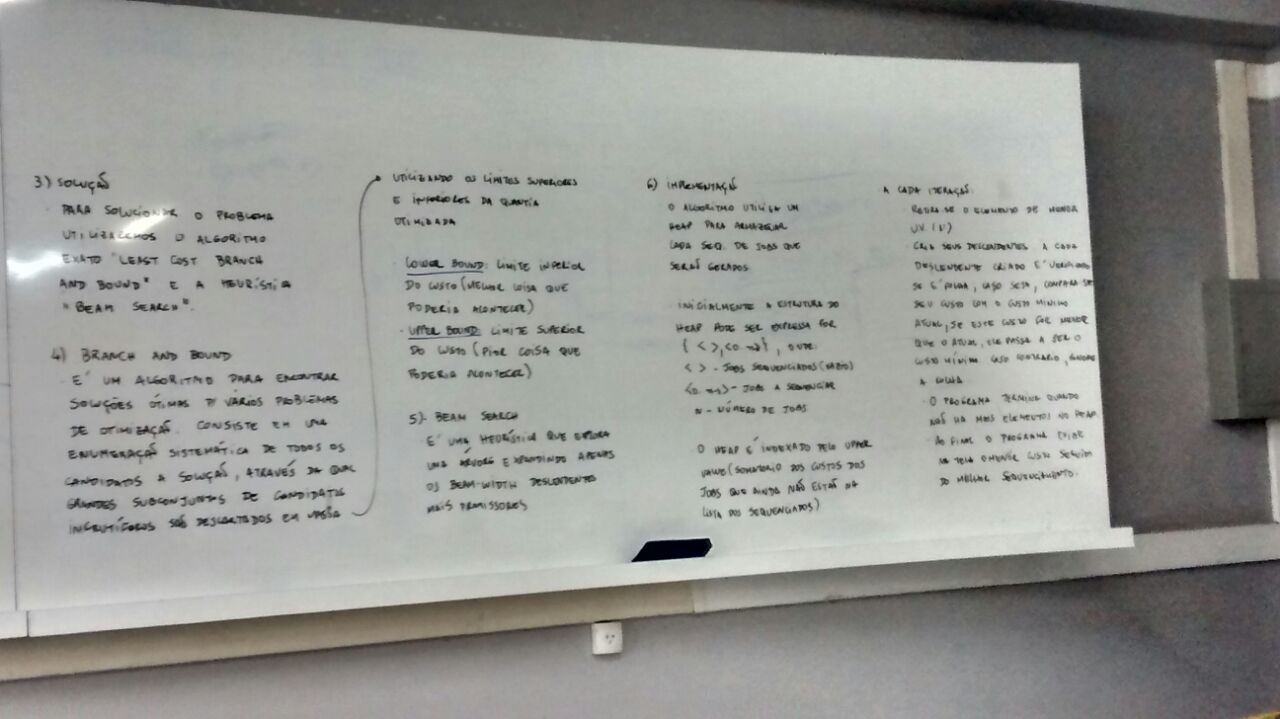 3) SOLUÇÃO
· PARA SOLUCIONAR O PROBLEMA
UTILIZAREMOS O ALGORITMO
EXATO "LEAST COST BRANCH
AND BOUND" E A HEURÍSTICA
"BEAM SEARCH".
4) BRANCH AND BOUND
· E' UM ALGORITMO PARA ENCONTRAR
SOLUÇÕES ÓTIMAS P/ VÁRIOS PROBLEMAS
DE OTIMIZAÇÃO. CONSISTE EM UMA
ENUMERAÇÃO SISTEMÁTICA DE TODOS OS
CANDIDATOS A SOLUÇÃO, ATRAVÉS DA QUAL
GRANDES SUBCONJUNTOS DE CANDIDATOS
INFRUTÍFEROS SÃO DESCARTADOS EM
UTILIZANDO OS LIMITES SUPERIORES
E INFERIORES DA QUANTIA
OTIMIZADA
· LOWER BOUND: LIMITE INFERIOR
DO CUSTO (MELHOR COISA QUE
PODERIA ACONTECER)
· UPPER BOUND: LIMITE SUPERIOR
DO CUSTO (PIOR COISA QUE
PODERIA ACONTECER)
5) BEAM SEARCH
E' UMA HEURÍSTICA QUE EXPLORA
UMA ÁRVORE EXPANDINDO APENAS
OS BEAM-WIDTH DESCENDENTES
MAIS PROMISSORES
6) IMPLEMENTAÇÃO
O ALGORITMO UTILIZA UM
HEAP PARA ARMAZENAR
CADA SEQ. DE JOBS QUE
SERÃO GERADOS
INICIALMENTE A ESTRUTURA DO
HEAP PODE SER EXPRESSA POR
{ < >, <0..n-1>}, ONDE:
< > - JOBS SEQUENCIADOS (VAZIO)
<0..n-1> - JOBS A SEQUENCIAR
N - NÚMERO DE JOBS
O HEAP E' INDEXADO PELO UPPER
VALUE (SOMATÓRIO DOS CUSTOS DOS
JOBS QUE AINDA NÃO ESTÃO NA
LISTA DOS SEQUENCIADOS)
A CADA ITERAÇÃO:
· RETIRA-SE O ELEMENTO DE MENOR
U.V.
CRIA SEUS DESCENDENTES. A CADA
DESCENDENTE CRIADO E' VERIFICADO
SE E' FOLHA, CASO SEJA, COMPARA-SE
SEU CUSTO COM O CUSTO MÍNIMO
ATUAL, SE ESTE CUSTO FOR MENOR
QUE O ATUAL, ELE PASSA A SER O
CUSTO MÍNIMO. CASO CONTRÁRIO,
A FOLHA.
· O PROGRAMA TERMINA QUANDO
NÃO HA MAIS ELEMENTOS NO HEAP.
AO FINAL O PROGRAMA EXIBE
NA TELA O MENOR CUSTO SEGUIDO
DO MELHOR SEQUENCIAMENTO.